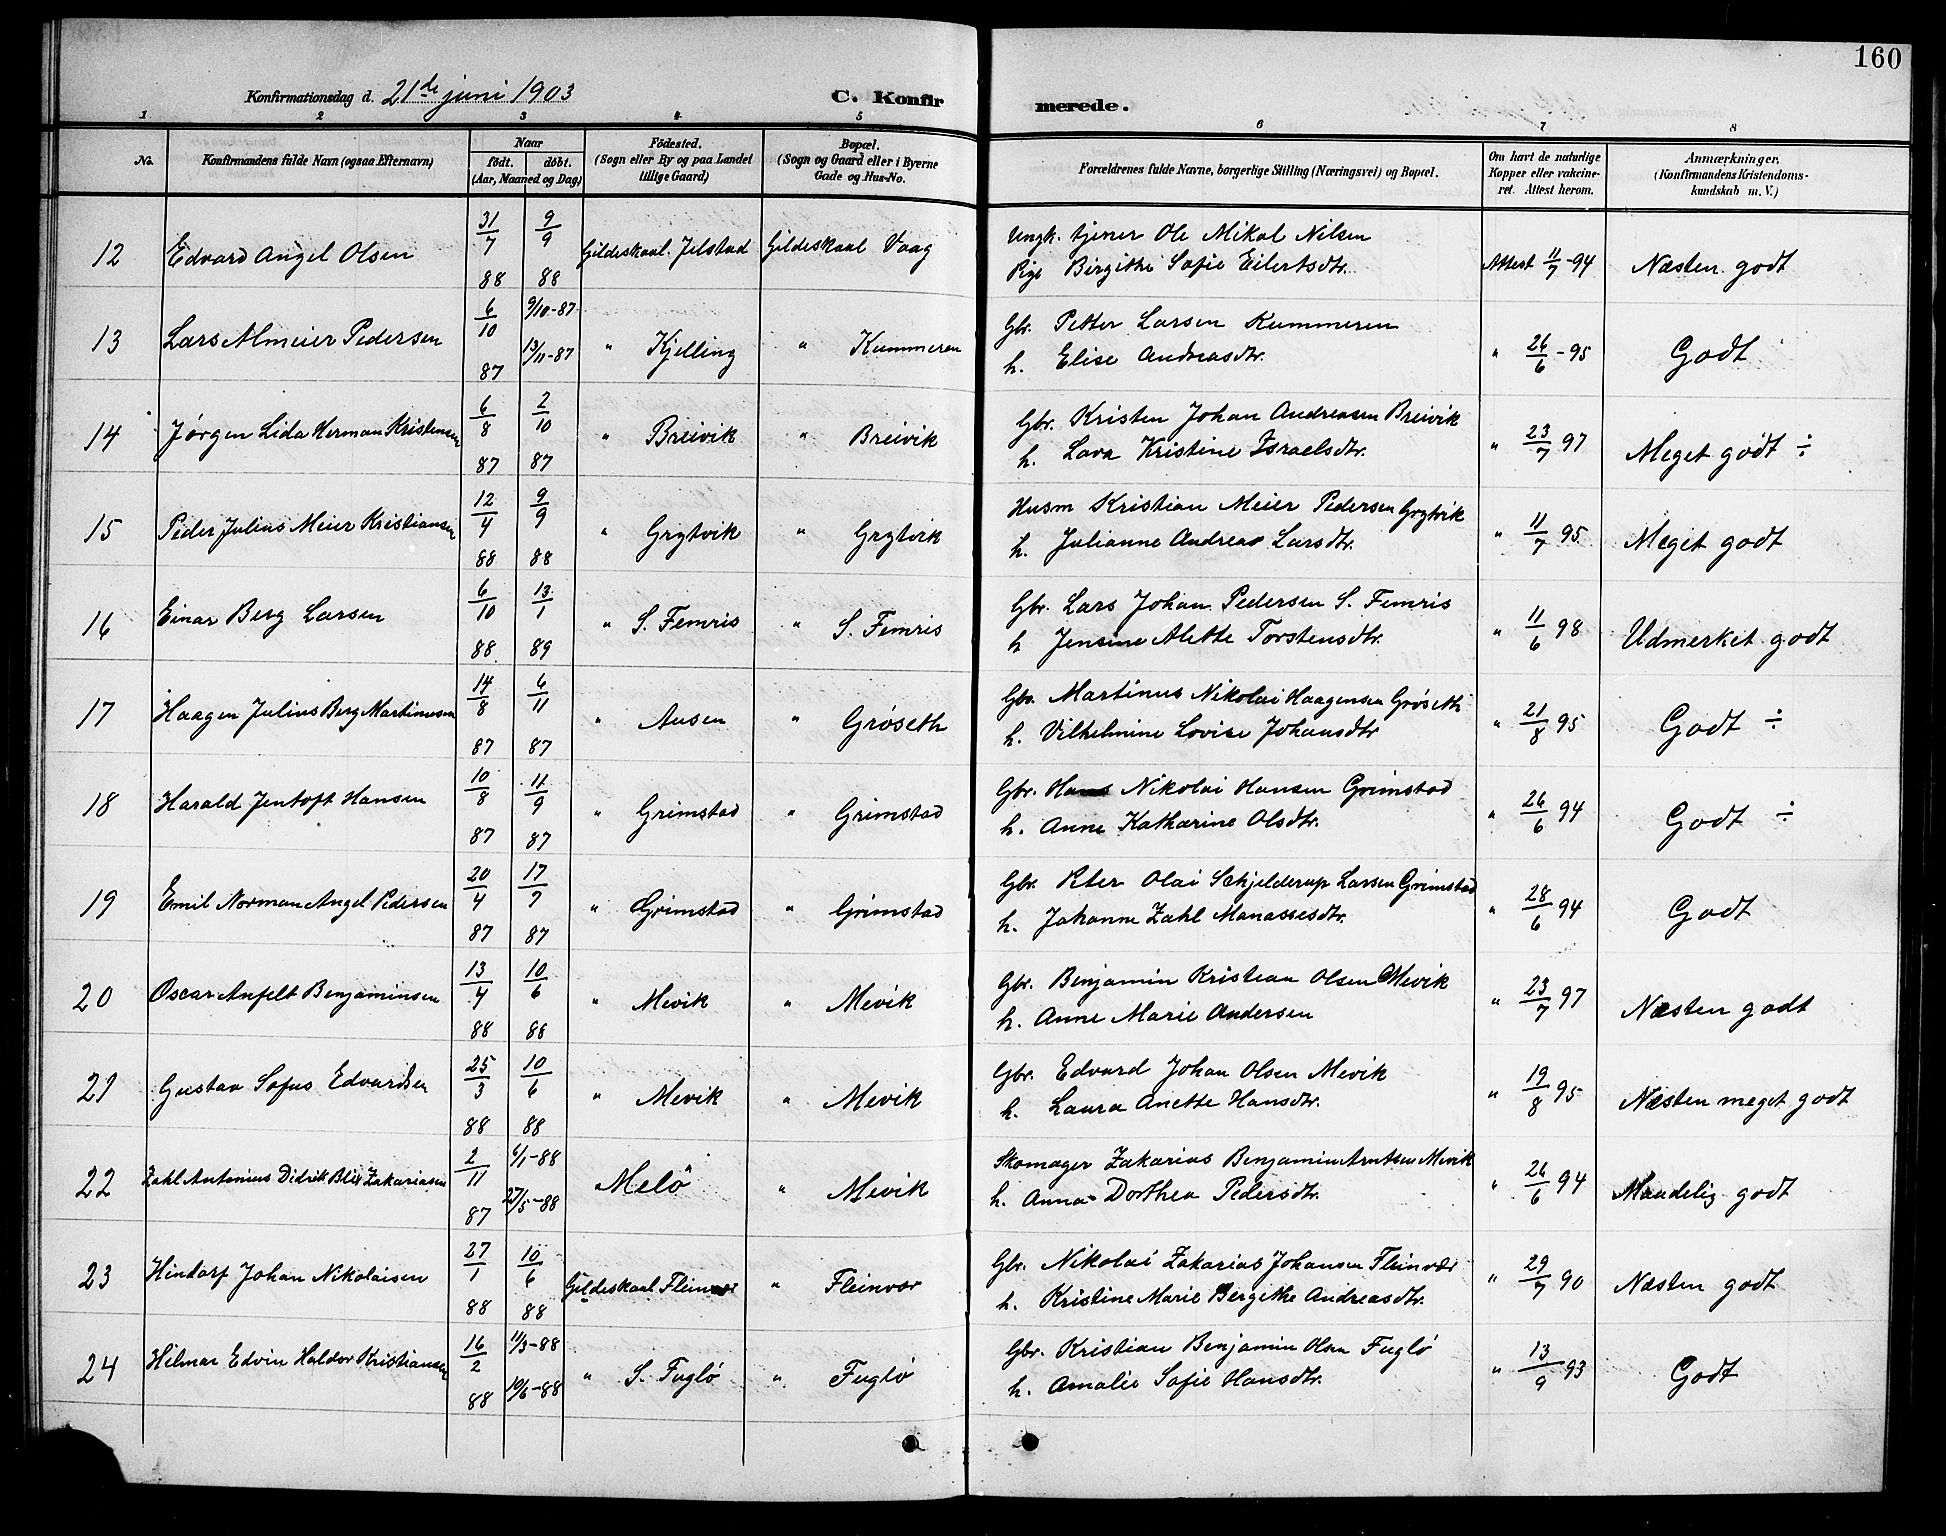 160
Konfirmationsdag d. 21de juni 1903 C. Konfirmerede.
1 2 3 4 5 6 7 8
No. Konfirmandens fulde Navn (ogsaa Efternavn) Naar født. døbt. (Aar, Maaned og Dag) Fødested. (Sogn eller By og paa Landet tillige Gaard) Bopæl. (Sogn og Gaard eller i Byerne Gade og Hus-No. Forældrenes fulde Navne, borgerlige Stilling (Næringsvei) og Bopæl. Om havt de naturlige Kopper eller vakcineret. Attest herom. Anmærkninger. (Konfirmandens Kristendomskundskab m. V.)
12 Edvard Angel Olsen 31/7 88 9/9 88 Gildeskaal. Jelstad Gildeskaal Vaag Ungk. tjener Ole Mikal Nilsen
Pige Birgithe Sofie Eilertsdtr. Attest 11/7-94 Næsten godt
13 Lars Almeier Pedersen 6/10 87 9/10-87 13/11-87 " Kjelling " Kummeren Gbr. Petter Larsen Kummeren
h. Elise Andreasdtr. " 26/6-95 Godt
14 Jørgen Lida Herman Kristensen 6/8 87 2/10 87 " Breivik " Breivik Gbr. Kristen Johan Andreasen Breivik
h. Lava Kristine Israelsdtr. " 23/7 97 Meget godt ÷
15 Peder Julius Meier Kristiansen 12/4 88 9/9 88 " Grytvik " Grytvik Husm Kristian Meier Pedersen Grytvik
h. Julianne Andrea Larsdtr. " 11/7 95 Meget godt
16 Einar Berg Larsen 6/10 88 13/1 89 " S. Femris " S. Femris Gbr. Lars Johan Pedersen S. Femris
h Jensine Alette Torstensdtr. " 11/6 98 Udmerket godt
17 Haagen Julius Berg Martinusen 14/8 87 6/11 87 " Ausen " Grøseth Gbr. Martinus Nikolai Haagensen Grøseth
h. Vilhelmine Lovise Johansdtr " 21/8 95 Godt ÷
18 Harald Jentoft Hansen 10/8 87 11/9 87 " Grimstad " Grimstad Gbr. Hans Nikolai Hansen Grimstad
h. Anne Katharine Olsdtr. " 26/6 94 Godt ÷
19 Emil Norman Angel Pedersen 20/4 87 17/7 87 " Grimstad " Grimstad Gbr. Peter Olai Schjelderup Larsen Grimstad
h. Johanne Zahl Manassesdtr. " 28/6 94 Godt
20 Oscar Anfelt Benjaminsen 13/4 88 10/6 88 " Mevik " Mevik Gbr. Benjamin Kristian Olsen Mevik
h. Anne Marie Andersen " 23/7 97 Næsten godt
21 Gustav Sofus Edvardsen 25/3 88 10/6 88 " Mevik " Mevik Gbr. Edvard Johan Olsen Mevik
h. Laura Anette Hansdtr. " 19/8 95 Næsten meget godt
22 Zahl Antonius Didrik Blix Zakariasen 2/11 87 6/1-88 27/5-88 Melø " Mevik Skomager Zakarias Benjamin Arntsen Mevik
h. Anna Dorthea Pedersdtr. " 26/6 94 Maadelig godt
23 Hindorf Johan Nikolaisen 27/1 88 10/6 88 Gildeskaal Fleinvær " Fleinvær Gbr. Nikolai Zakarias Johansen Fleinvær
h. Kristine Marie Bergithe Andreasdtr. " 29/7 90 Næsten godt
24 Hilmar Edvin Haldor Kristiansen 16/2 88 11/3-88 10/6-88 " S. Fuglø " Fuglø Gbr. Kristian Benjamin Olsen Fuglø
h. Amalie Sofie Hansdtr. " 13/9 93 Godt